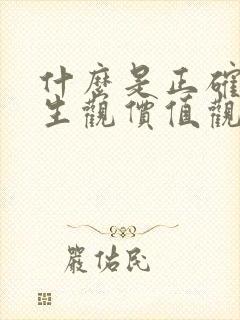 什麼是正確
生觀價值觀
嚴佑民